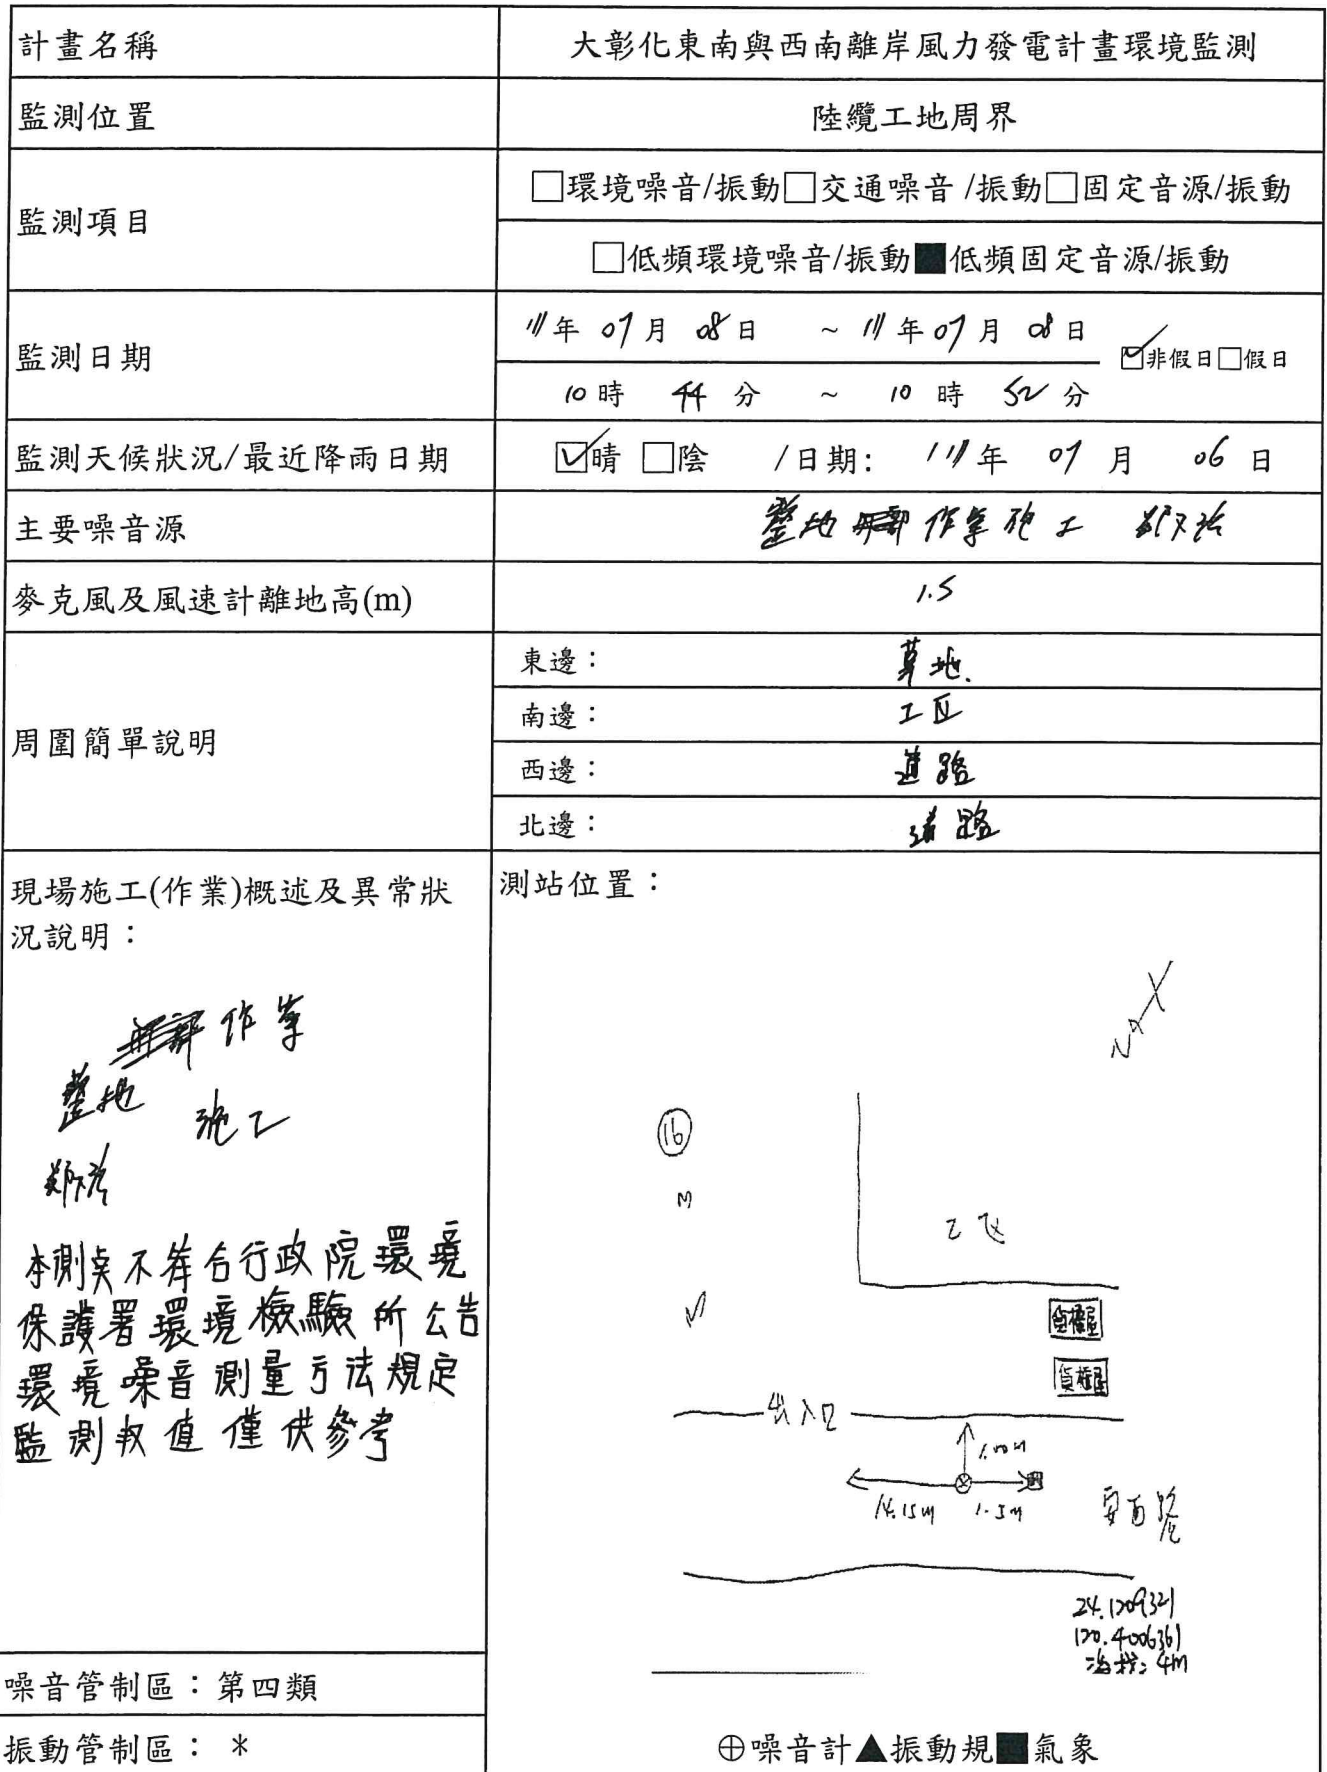 計畫名稱
大彰化東南與西南離岸風力發電計畫環境監測
監測位置
陸纜工地周界
監測項目
□環境噪音/振動□交通噪音 /振動□固定音源/振動
□低頻環境噪音/振動■低頻固定音源/振動
監測日期
111年 07月 08日 ~ 111年 07月 08日
10時 44分 ~ 10時 52分
☑非假日□假日
監測天候狀況/最近降雨日期
☑晴 □陰 /日期: 111年 07月 06日
主要噪音源
整地 作業施工
麥克風及風速計離地高(m)
1.5
周圍簡單說明
東邊：草地.
南邊：工區
西邊：道路
北邊：道路
現場施工(作業)概述及異常狀
況說明：
作業
整地
施工
本測點不符合行政院環境
保護署環境檢驗所公告
環境噪音測量方法規定
監測數值僅供參考
噪音管制區：第四類
振動管制區： *
測站位置：
N
16
工區
貨櫃屋
貨櫃屋
出入口
1.00m
14.15m
1.5m
24.1209321
120.4006361
4m
⊕噪音計▲振動規■氣象